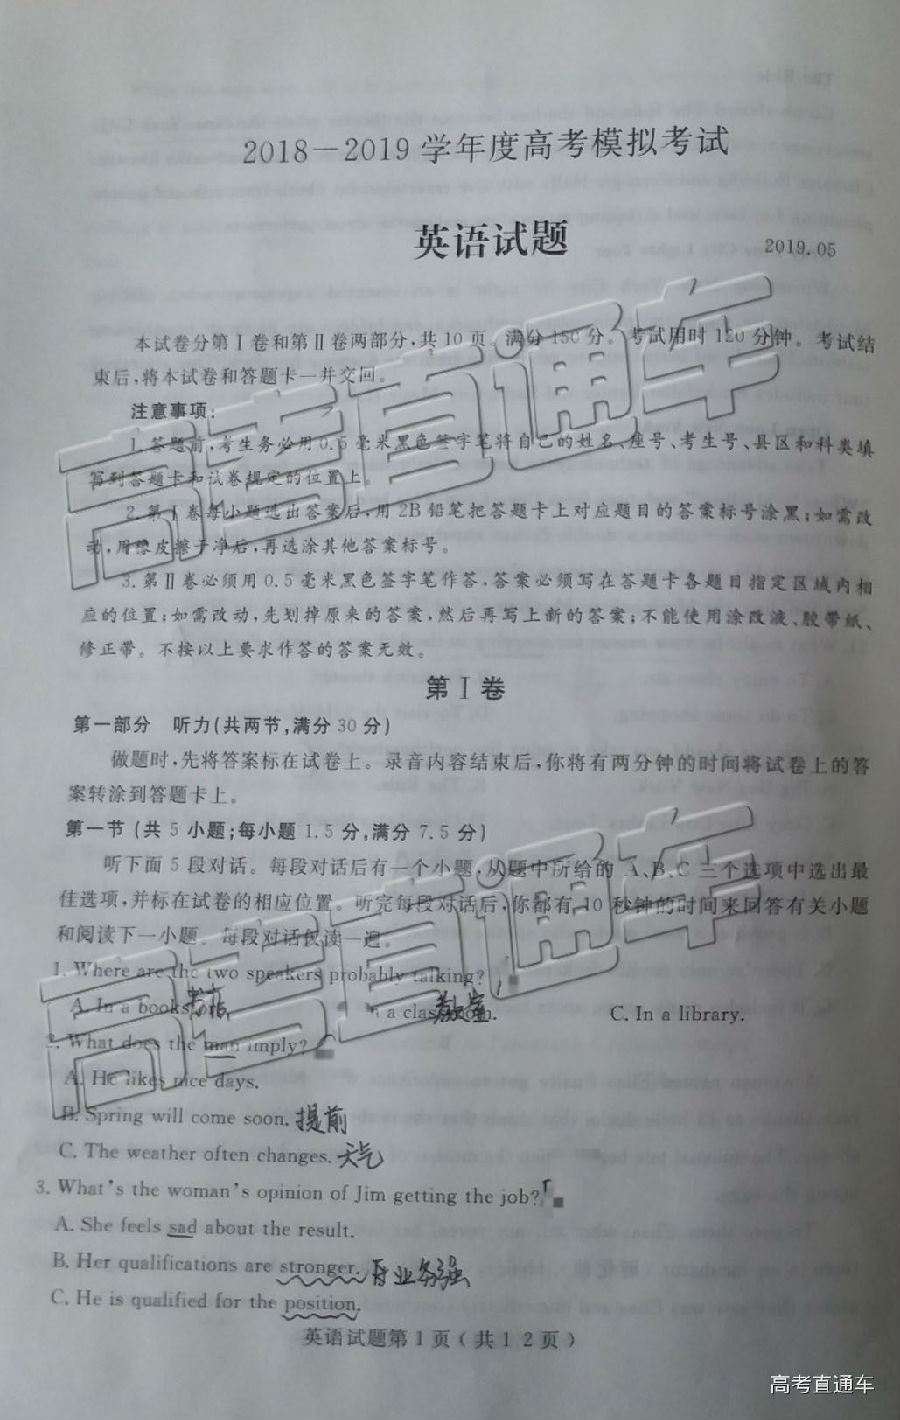 2018－2019学年度高考模拟考试
英语试题
2019.05
本试卷分第Ⅰ卷和第Ⅱ卷两部分,共10页。满分150分。考试用时120分钟。考试结
束后,将本试卷和答题卡一并交回。
注意事项:
1.答题前,考生务必用0.5毫米黑色签字笔将自己的姓名、座号、考生号、县区和科类填
写到答题卡和试卷规定的位置上。
2.第Ⅰ卷每小题选出答案后,用2B铅笔把答题卡上对应题目的答案标号涂黑;如需改
动,用橡皮擦干净后,再选涂其他答案标号。
3.第Ⅱ卷必须用0.5毫米黑色签字笔作答,答案必须写在答题卡各题目指定区域内相
应的位置;如需改动,先划掉原来的答案,然后再写上新的答案;不能使用涂改液、胶带纸、
修正带。不按以上要求作答的答案无效。
第Ⅰ卷
第一部分 听力(共两节,满分30分)
做题时,先将答案标在试卷上。录音内容结束后,你将有两分钟的时间将试卷上的答
案转涂到答题卡上。
第一节(共5小题;每小题1.5分,满分7.5分)
听下面5段对话。每段对话后有一个小题,从题中所给的A、B、C三个选项中选出最
佳选项,并标在试卷的相应位置。听完每段对话后,你都有10秒钟的时间来回答有关小题
和阅读下一小题。每段对话仅读一遍。
1. Where are the two speakers probably talking?
A. In a bookstore. 书店 In a classroom. 教室 C. In a library.
2. What does the man imply?
A. He likes nice days.
B. Spring will come soon. 提前
C. The weather often changes. 天气
3. What's the woman's opinion of Jim getting the job?
A. She feels sad about the result.
B. Her qualifications are stronger. 业务强
C. He is qualified for the position.
英语试题第1页(共12页)
高考直通车
高考直通车
高考直通车